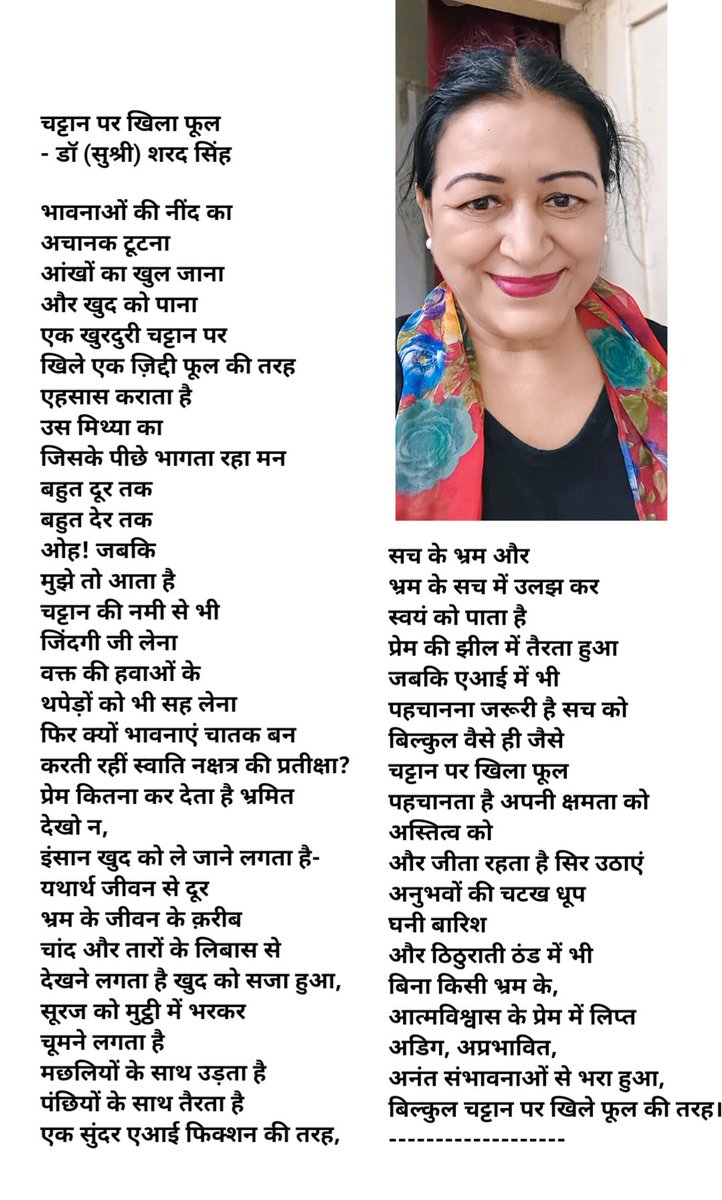 चट्टान पर खिला फूल
- डॉ (सुश्री) शरद सिंह
भावनाओं की नींद का
अचानक टूटना
आंखों का खुल जाना
और खुद को पाना
एक खुरदुरी चट्टान पर
खिले एक ज़िद्दी फूल की तरह
एहसास कराता है
उस मिथ्या का
जिसके पीछे भागता रहा मन
बहुत दूर तक
बहुत देर तक
ओह! जबकि
मुझे तो आता है
चट्टान की नमी से भी
जिंदगी जी लेना
वक्त की हवाओं के
थपेड़ों को भी सह लेना
फिर क्यों भावनाएं चातक बन
करती रहीं स्वाति नक्षत्र की प्रतीक्षा?
प्रेम कितना कर देता है भ्रमित
देखो न,
इंसान खुद को ले जाने लगता है-
यथार्थ जीवन से दूर
भ्रम के जीवन के क़रीब
चांद और तारों के लिबास से
देखने लगता है खुद को सजा हुआ,
सूरज को मुट्ठी में भरकर
चूमने लगता है
मछलियों के साथ उड़ता है
पंछियों के साथ तैरता है
एक सुंदर एआई फिक्शन की तरह,
सच के भ्रम और
भ्रम के सच में उलझ कर
स्वयं को पाता है
प्रेम की झील में तैरता हुआ
जबकि एआई में भी
पहचानना जरूरी है सच को
बिल्कुल वैसे ही जैसे
चट्टान पर खिला फूल
पहचानता है अपनी क्षमता को
अस्तित्व को
और जीता रहता है सिर उठाएं
अनुभवों की चटख धूप
घनी बारिश
और ठिठुराती ठंड में भी
बिना किसी भ्रम के,
आत्मविश्वास के प्रेम में लिप्त
अडिग, अप्रभावित,
अनंत संभावनाओं से भरा हुआ,
बिल्कुल चट्टान पर खिले फूल की तरह।
-------------------